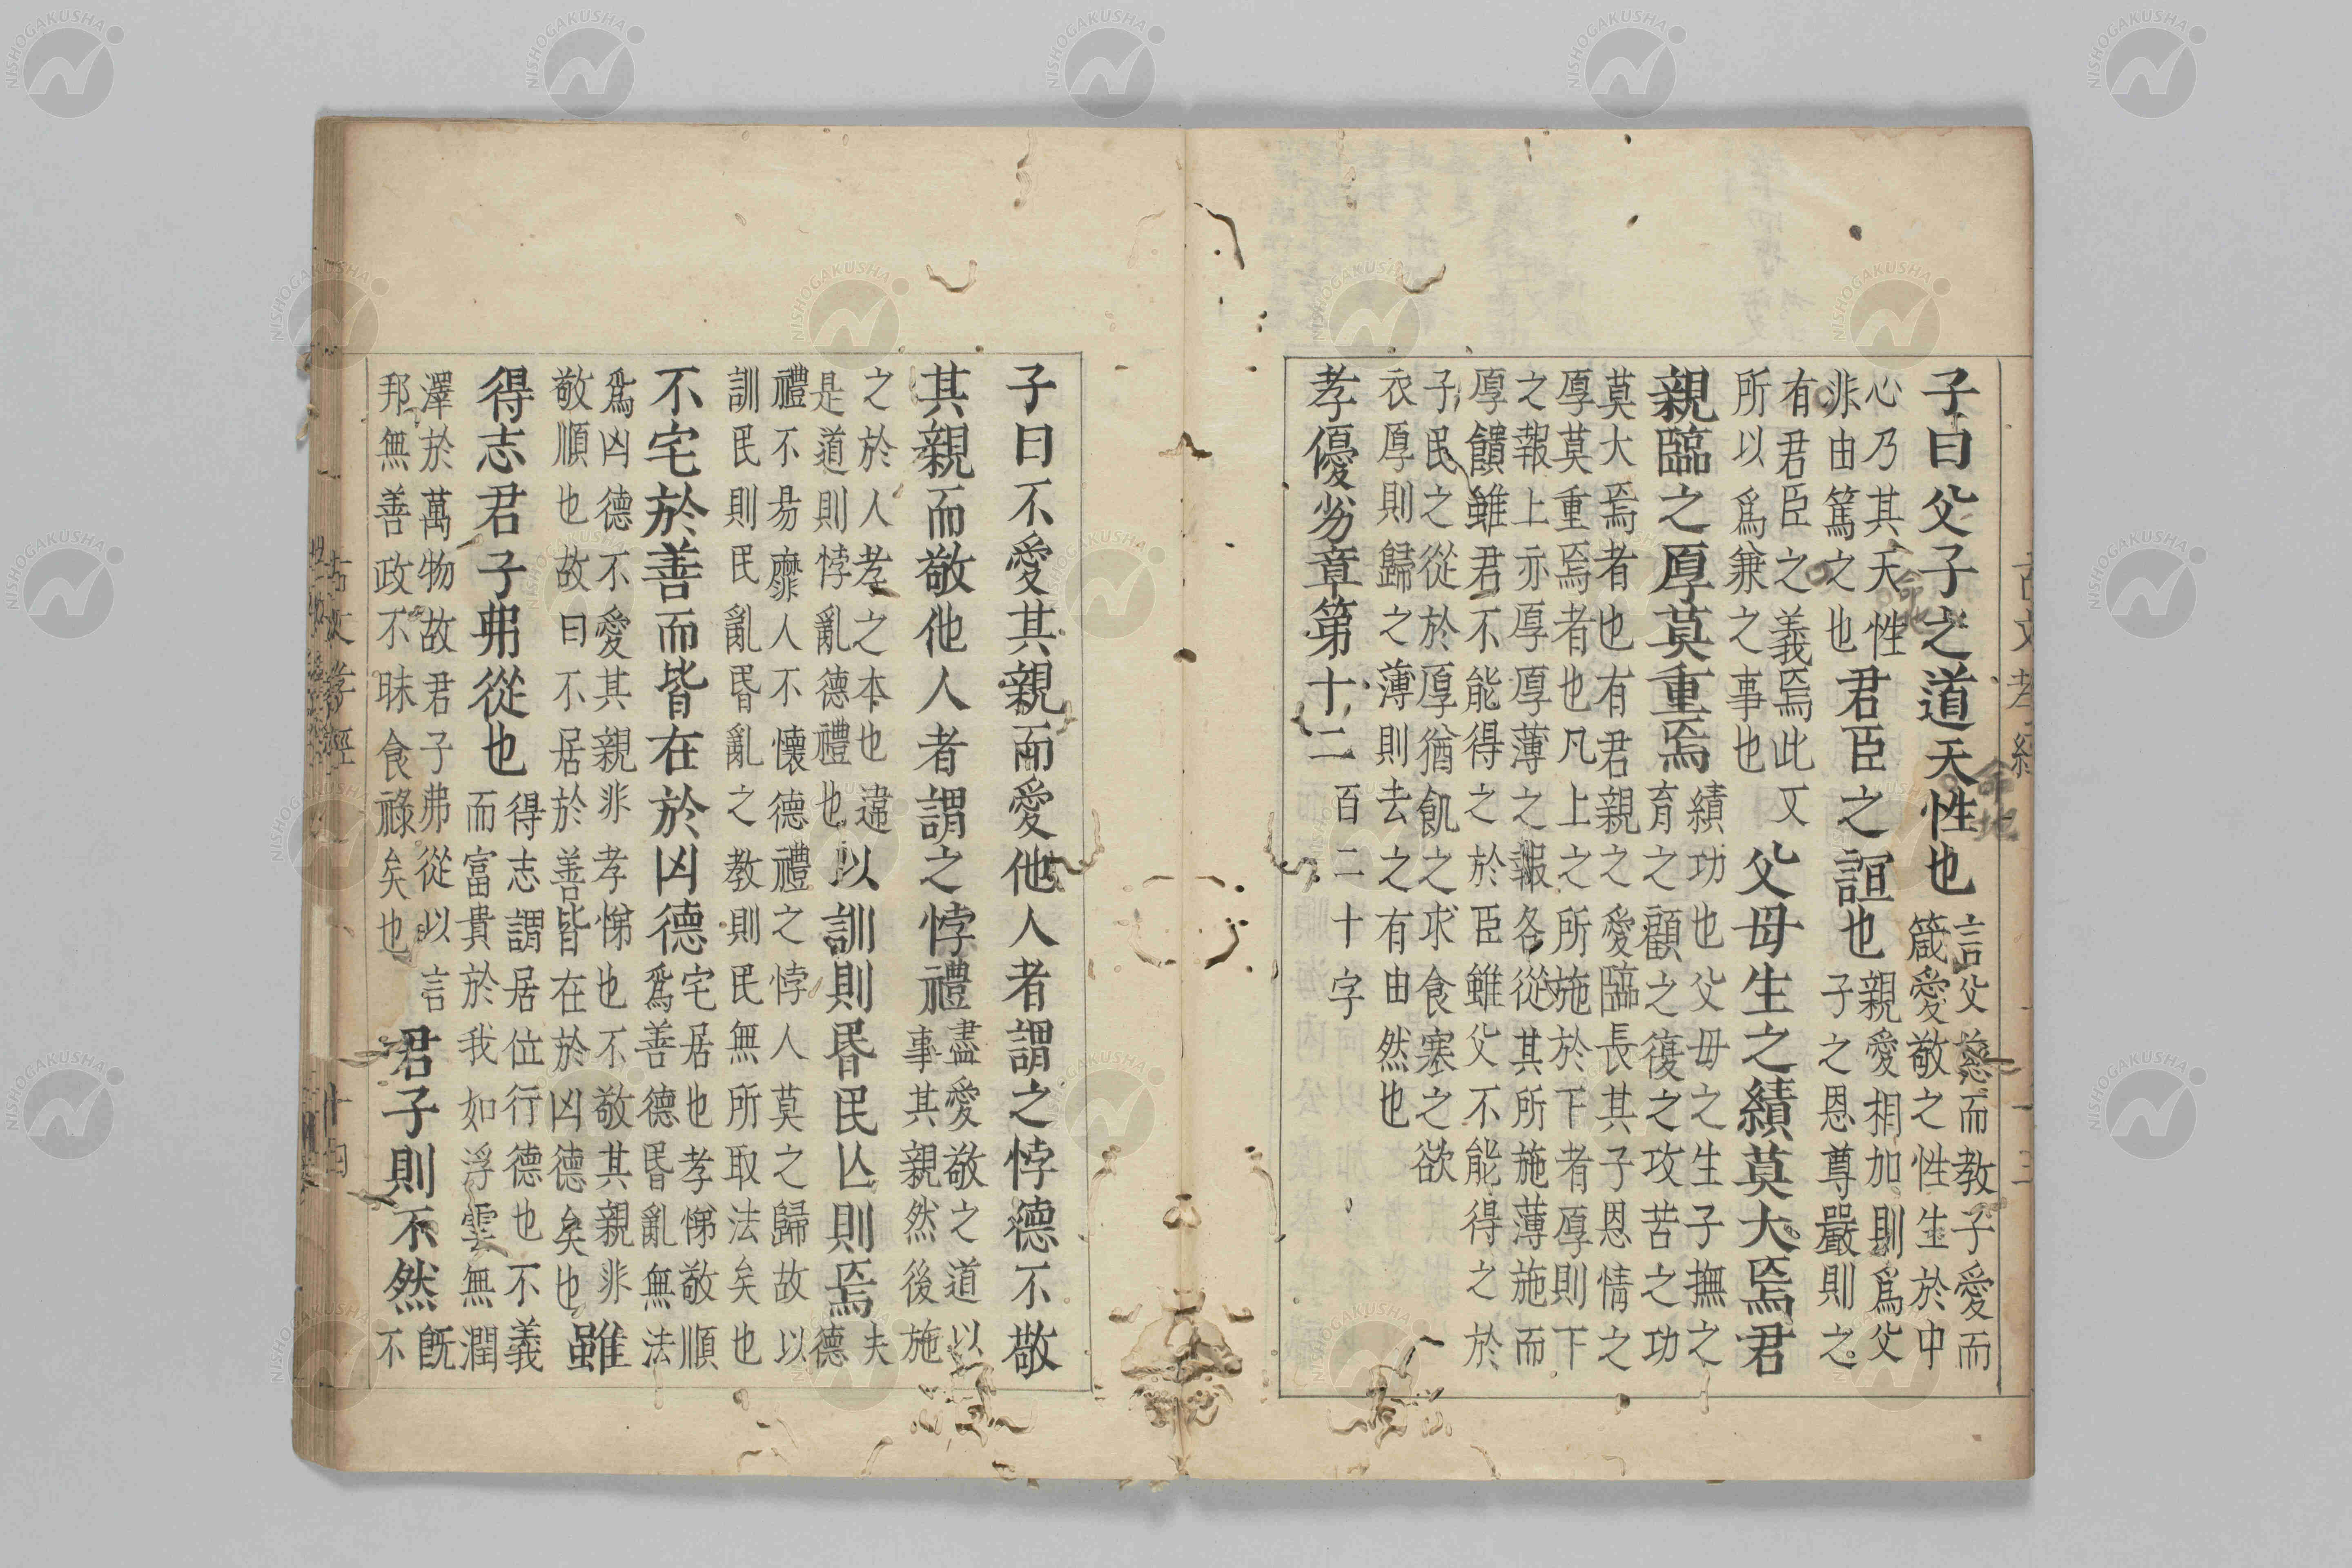 子曰父子之道天性也言父慈而教子愛而
箴愛敬之性生於中
心乃其天性
非由篤之也君臣之誼也親愛相加則爲父
子之恩尊嚴則之
有君臣之義焉此又
所以爲兼之事也父母生之績莫大焉君
親臨之厚莫重焉績功也父母之生子撫之
育之顧之復之攻苦之功
莫大焉者也有君親之愛臨長其子恩情之
厚莫重焉者也凡上之所施於下者厚則下
之報上亦厚厚薄之報各從其所施薄施而
厚饋雖君不能得之於臣雖父不能得之於
子民之從於厚猶飢之求食寒之欲
衣厚則歸之薄則去之有由然也
孝優劣章第十二 百二十字
子曰不愛其親而愛他人者謂之悖德不敬
其親而敬他人者謂之悖禮盡愛敬之道以
事其親然後施
之於人孝之本也違
是道則悖亂德禮也以訓則昬民亾則焉夫
德
禮不易靡人不懷德禮之悖人莫之歸故以
訓民則民亂昬亂之教則民無所取法矣也
不宅於善而皆在於凶德宅居也孝悌敬順
爲善德昬亂無法
爲凶德不愛其親非孝悌也不敬其親非
敬順也故曰不居於善皆在於凶德矣也雖
得志君子弗從也得志謂居位行德也不義
而富貴於我如浮雲無潤
澤於萬物故君子弗從以言
邦無善政不昧食祿矣也君子則不然既
不